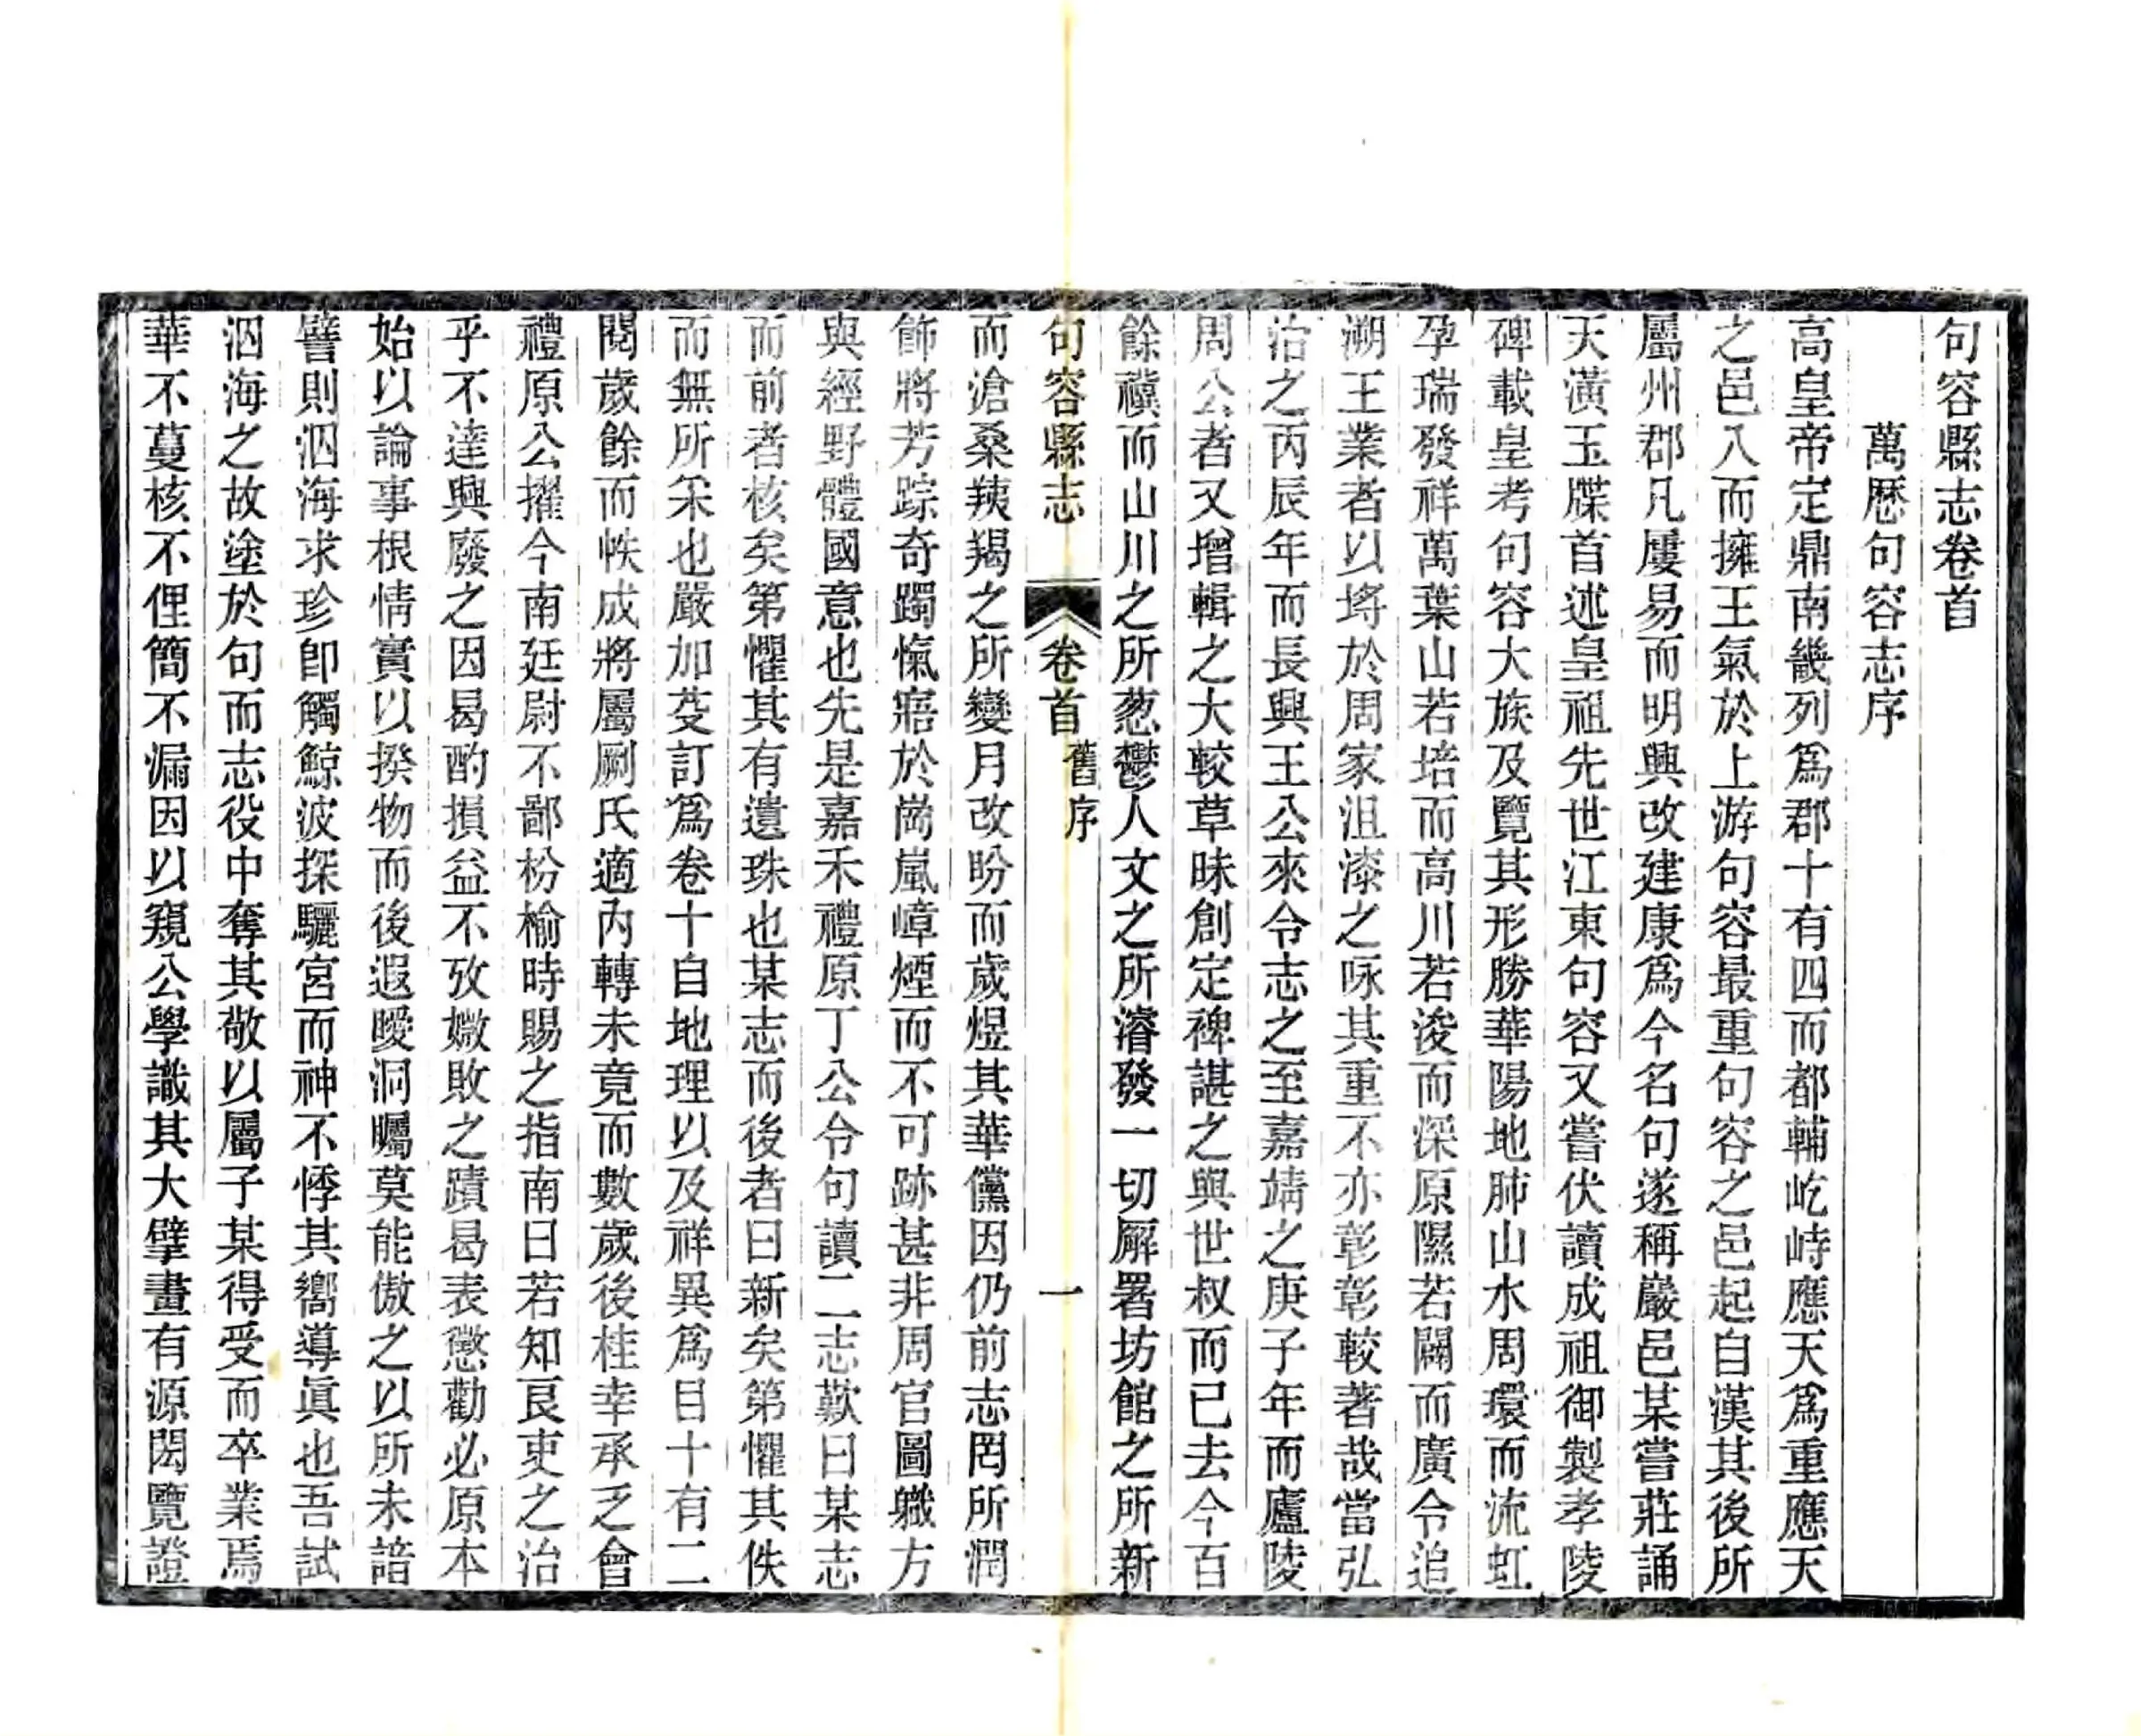 句容縣志卷首
萬厯句容志序
高皇帝定鼎南畿列爲郡十有四而都輔屹峙應天爲重應天
之邑八而擁王氣於上游句容最重句容之邑起自漢其後所
屬州郡凡屢易而明興改建康爲今名句遂稱巖邑某嘗莊誦
天潢玉牒首述皇祖先世江東句容又嘗伏讀成祖御製孝陵
碑載皇考句容大族及覽其形勝華陽地肺山水周環而流虹
孕瑞發祥萬葉山若培而高川若浚而深原隰若闢而廣令追
溯王業者以埒於周家沮漆之咏其重不亦彰彰較著哉當弘
治之丙辰年而長興王公來令志之至嘉靖之庚子年而廬陵
周公者又增輯之大較草昧創定裨諶之與世叔而已去今百
餘禩而山川之所葱鬱人文之所濬發一切廨署坊館之所新
句容縣志 卷首 舊序 一
而滄桑羠羯之所變月改盼而歲煜其華儻因仍前志罔所潤
飾將芳踪奇躅愾寤於崗嵐嶂煙而不可跡甚非周官圖職方
與經野體國意也先是嘉禾禮原丁公令句讀二志歎曰某志
而前者核矣第懼其有遺珠也某志而後者曰新矣第懼其佚
而無所采也嚴加芟訂爲卷十自地理以及祥異爲目十有二
閱歲餘而帙成將屬劂氏適內轉未竟而數歲後桂幸承乏會
禮原公擢今南廷尉不鄙枌榆時賜之指南曰若知良吏之治
乎不達興廢之因曷酌損益不攷媺敗之蹟曷表懲勸必原本
始以論事根情實以揆物而後遐曖洞矚莫能傲之以所未諳
譬則泗海求珍卽觸鯨波探驪宮而神不悸其嚮導眞也吾試
泗海之故塗於句而志役中奪其敬以屬子某得受而卒業焉
華不蔓核不俚簡不漏因以窺公學識其大擘畫有源閎覽證